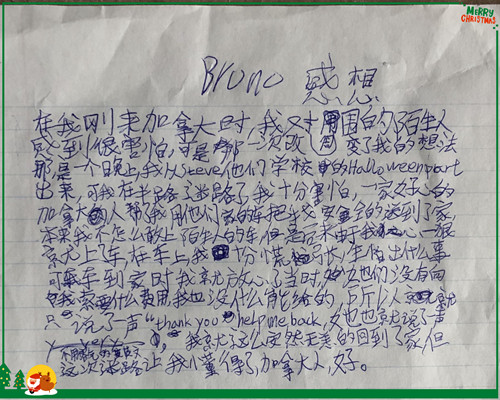 MERRY
CHRISTMAS
Bruno 感想
在我刚来加拿大时,我对周围的陌生人
感到很害怕,可是那一次改变了我的想法
那是一个晚上,我从Steve他们学校的Halloweenpart
出来,可我在半路迷路了,我十分害怕,一家好心的
加拿大人帮了我用他们家的车把我安全的送到了家,
本来我不怎么敢上陌生人的车,但是后来由于我心一狠
就上了车,在车上我十份慌长,生怕出什么事
可乖到家时我就放心了当时,他们没有向
我要什么费用我也没什么能给的,所以就
只说了一声"thank you help me back,她也就说了声
不用
我就这么安然无恙的回到了家,但
这次迷路让我懂得了加拿大人好。